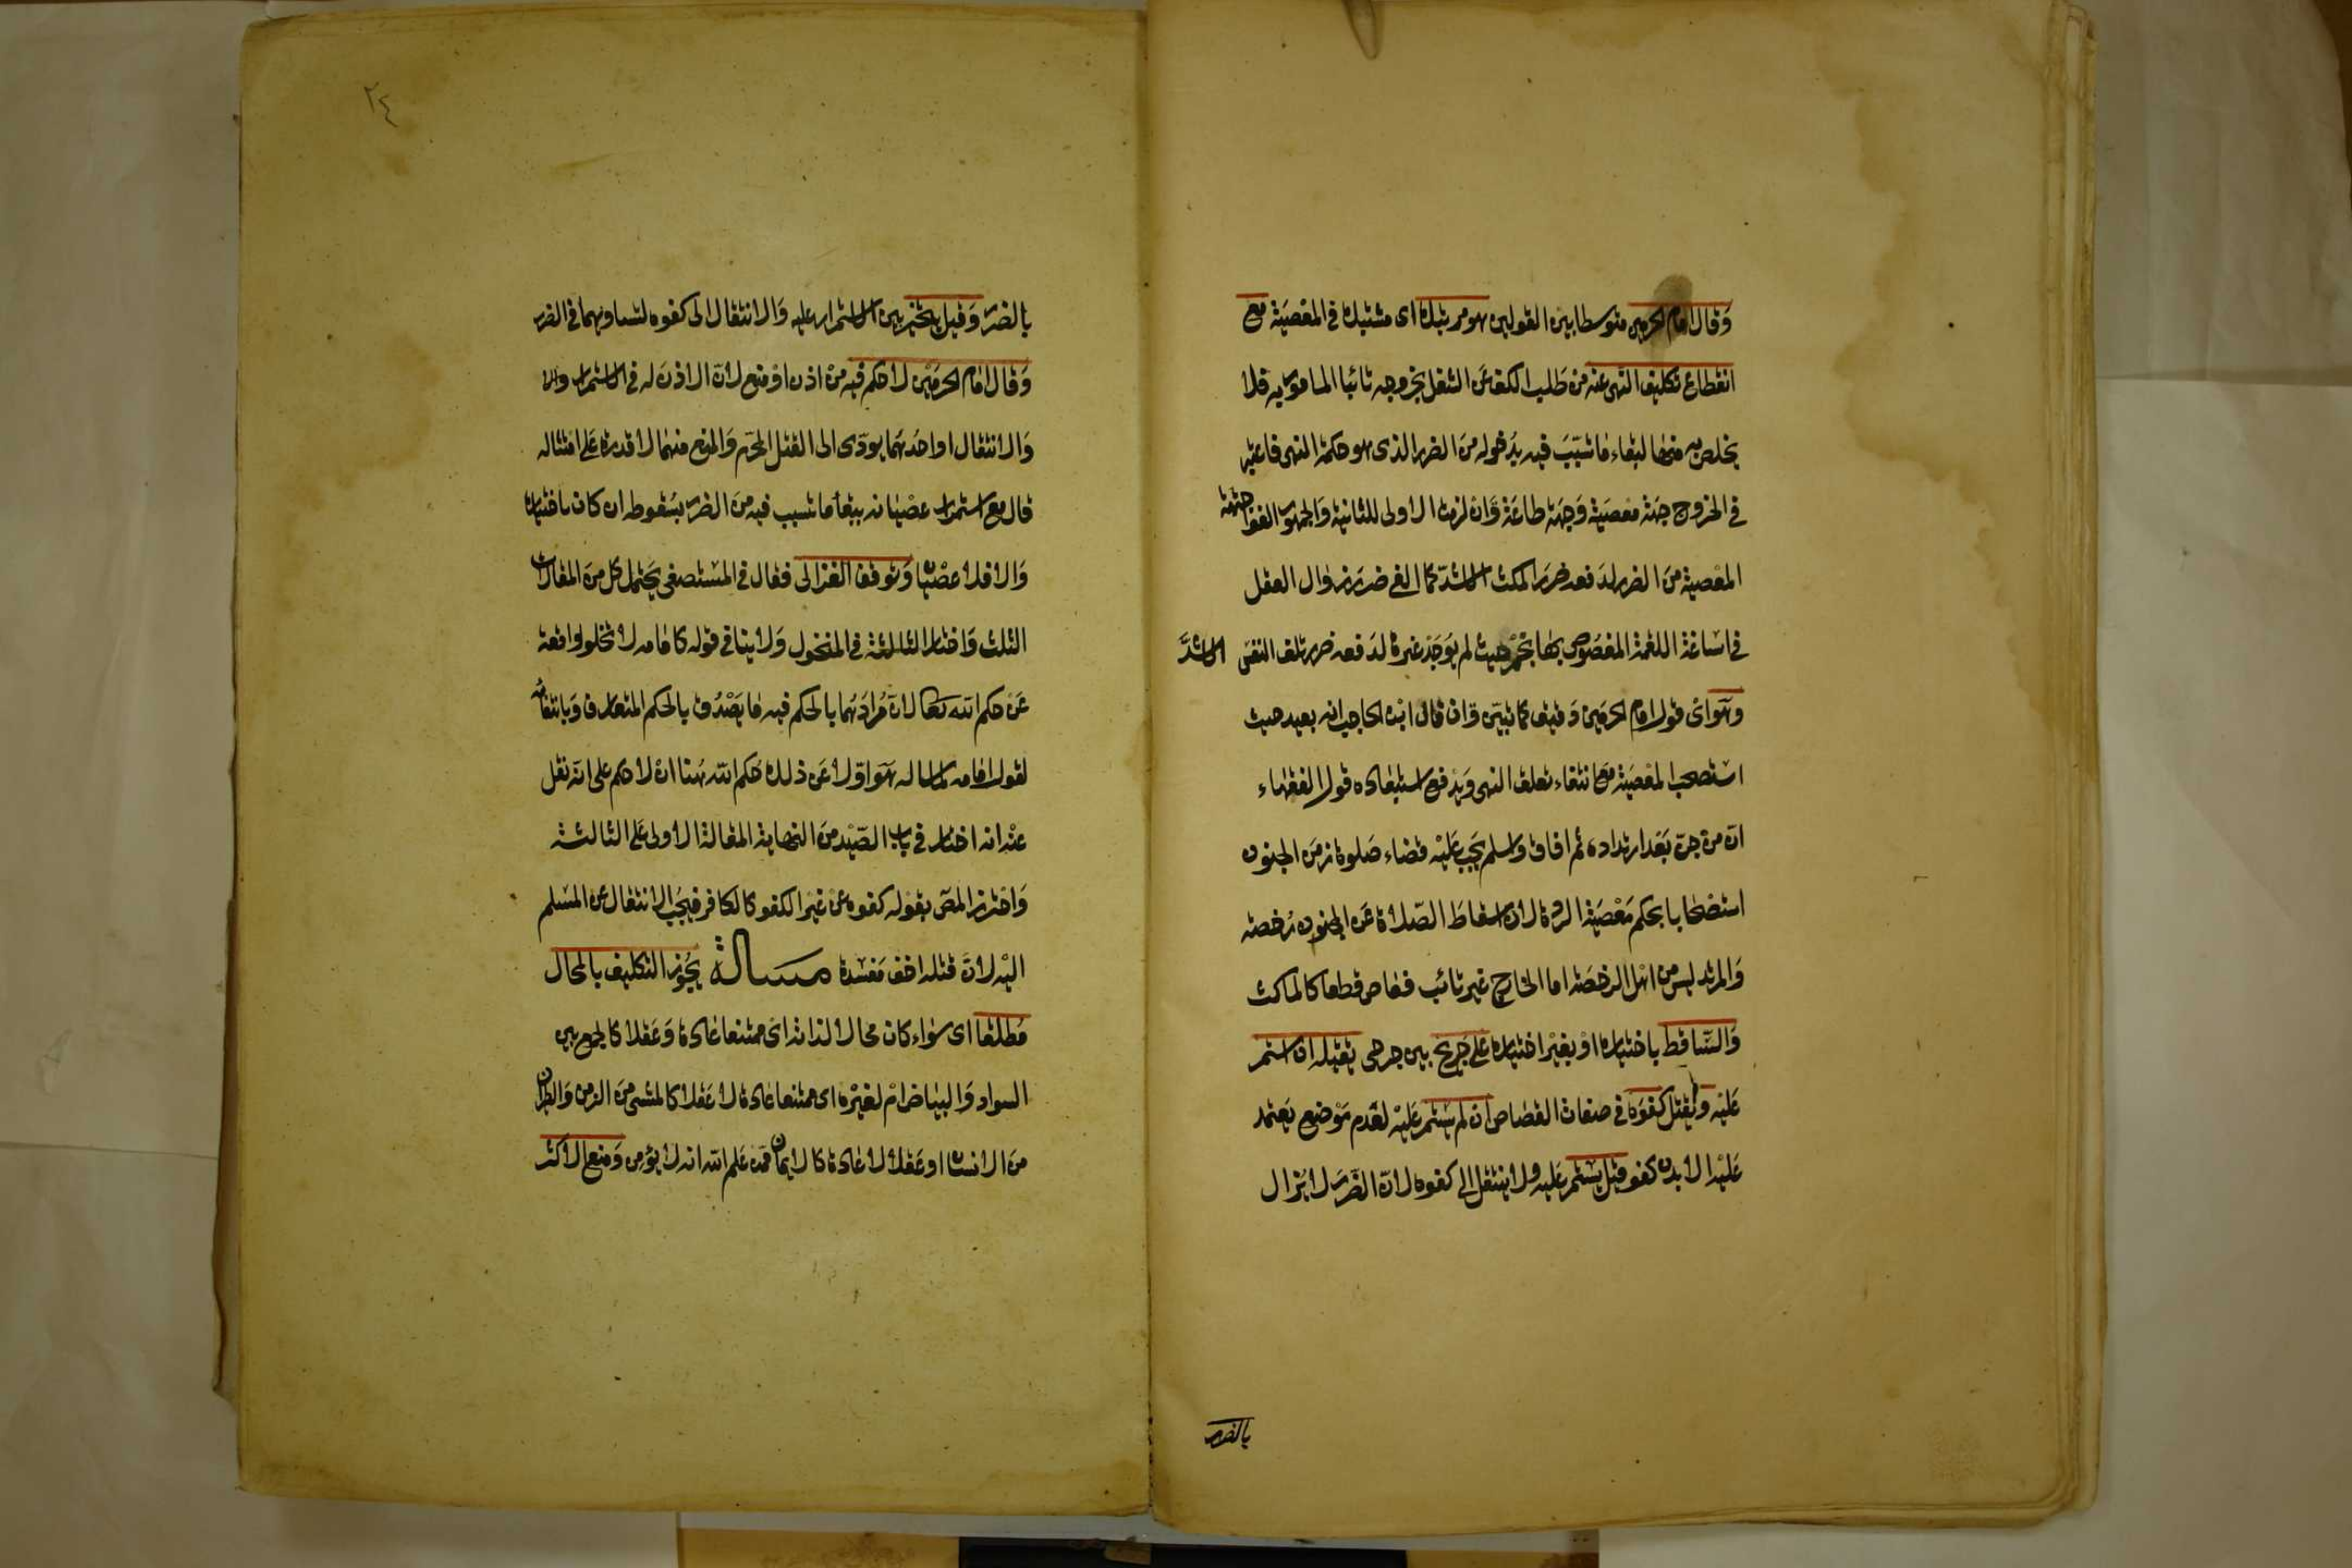 وقال امام الحرمين متوسطا بين القولين هو مرتبك اى مشتبك في المعصية مع
انقطاع تكليف النهى عنه من طلب الكف عن الشغل بخروجه تائبا المامور به فلا
يخلص به منها لبقاء ما تسبب فيه بدخوله من الضرر الذى هو حكمة النهى فاعتبر
في الخروج جهة معصية وجهة طاعة وان لزمت الاولى للثانية والجمهور الغوا جهة
المعصية من الضرر لدفعه ضرر المكث الاشد كما الغى ضرر زوال العقل
في اساغة اللقمة المغصوص بها بخمر حيث لم يوجد غيره لدفعه ضرر تلف النفس الاشد
وهو اى قول امام الحرمين دقيق كما تبين وان قال ابن الحاجب انه بعيد حيث
استصحب المعصية مع انتفاء تعلق النهى ويدفع استبعاده قول الفقهاء
ان من جن بعد ارتداده ثم افاق واسلم يجب عليه قضاء صلوة زمن الجنون
استصحابا بحكم معصية الردة لان اسقاط الصلاة عن الجنون رخصة
والمرتد ليس من اهل الرخصة اما الخارج غير تائب فعاص قطعا كالماكث
والساقط باختياره او بغير اختياره على جريح بين جرحى يقتله ان استمر
عليه ويقتل كفوه في صفات القصاص ان لم يستمر عليه لعدم موضع يعتمد
عليه الا بدن كفو قيل يستمر عليه ولا ينتقل الى كفوه لان الضرر لا يزال
بالضرر
٢٤
بالضرر وقيل يتخير بين الاستمرار عليه والانتقال الى كفوه لتساويهما في الضرر
وقال امام الحرمين لا حكم فيه من اذن او منع لان الاذن له في الاستمرار والا
والانتقال او احدهما يودى الى القتل المحرم والمنع منهما لا قدرة على امتثاله
قال مع استمرار عصيانه ببقأ ما تسبب فيه من الضرر بسقوطه ان كان باختياره
والا فلا عصيان وتوقف الغزالى فقال في المستصفى يحتمل كل من المقالات
الثلث واختار الثالثة في المنخول ولا ينافي قوله كامامه لا تخلو واقعة
عن حكم الله تعالى لان مرادهما بالحكم فيه ما يصدق بالحكم المتعارف وبانتفائه
لقول امامه لما ساله هو اولا عن ذلك حكم الله هنا ان لا حكم على انه نقل
عنه انه اختار في باب الصيد من النهاية المقالة الاولى على الثالثة
واحترز المص بقوله كفوه عن غير الكفو كالكافر فيجب الانتقال عن المسلم
اليه لان قتله اخف مفسدة مسالة يجوز التكليف بالمحال
مطلقا اى سواء كان محالا لذاته اى ممتنعا عادة وعقلا كالجمع بين
السواد والبياض ام لغيره اى ممتنعا عادة لا عقلا كالمشى من الزمن والطيران
من الانسان او عقلا لا عادة كالايمان ممن علم الله انه لا يؤمن ومنع الاكثر